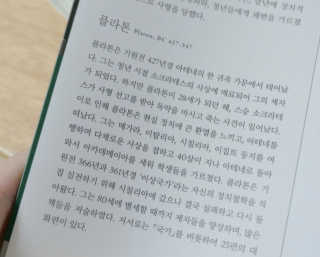 으로 사형을 당했다.
플라톤 Platon, BC 427-347
플라톤은 기원전 427년경 아테네의 한 귀족 가문에서 태어났
다. 그는 청년 시절 소크라테스의 사상에 매료되어 그의 제자
가 되었다. 하지만 플라톤이 28세가 되던 해, 스승 소크라테
스가 사형 선고를 받아 독약을 마시고 죽는 사건이 일어난다.
이로 인해 플라톤은 현실 정치에 큰 환멸을 느끼고, 아테네를
떠난다. 그는 메가라, 이탈리아, 시칠리아, 이집트 등지를 여
행하며 다채로운 사상을 접하고 40살이 지나 아테네로 돌아
와서 아카데메이아를 세워 학생들을 가르쳤다. 플라톤은 기
원전 366년과 361년경 '이상국가'라는 자신의 정치철학을 직
접 실천하기 위해 시칠리아에 갔으나 결국 실패하고 다시 돌
아왔다. 그는 80세에 별세할 때까지 제자들을 양성하며, 많은
책들을 저술하였다. 저서로는 『국가』를 비롯하여 25편의 대
화편이 있다.